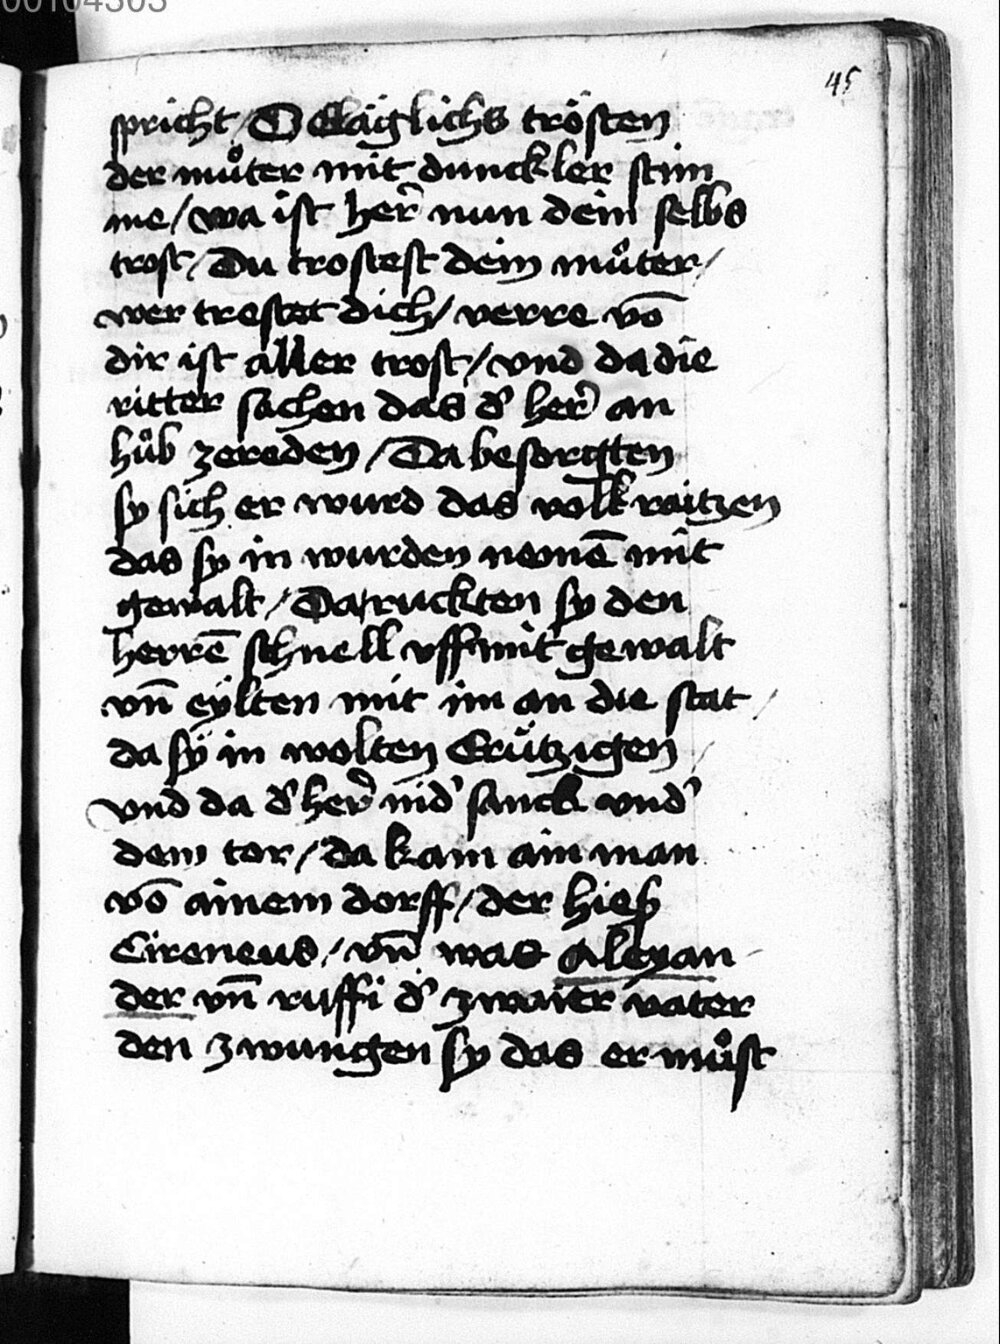 00104303
45
spricht / O Cläglichs trösten
der muͦter mit dunckler stim
me / wa ist her̃ nun dein selbs
trost / Du trostest dein muͦter /
wer trestet dich / verre vō
dir ist aller trost / vnd da die
ritter sachen das d' her̃ an
huͦb zereden / Da besorgtten
sy sich er wurd das volk raitzen
das sy in wurden nemē mit
gewalt / Da truckten sy den
herrē schnell vff mit gewalt
vn̄ eylten mit im an die stat /
da sÿ in wolten Crützigen /
vnd da d' her̃ nid' sanck vnd'
dem tor / da kam ain man
vō ainem dorff / der hieß
Cireneus / vn̄ was Alexan
der vn̄ ruffi d' zwaier vater
den zwungen sy das er muͦst